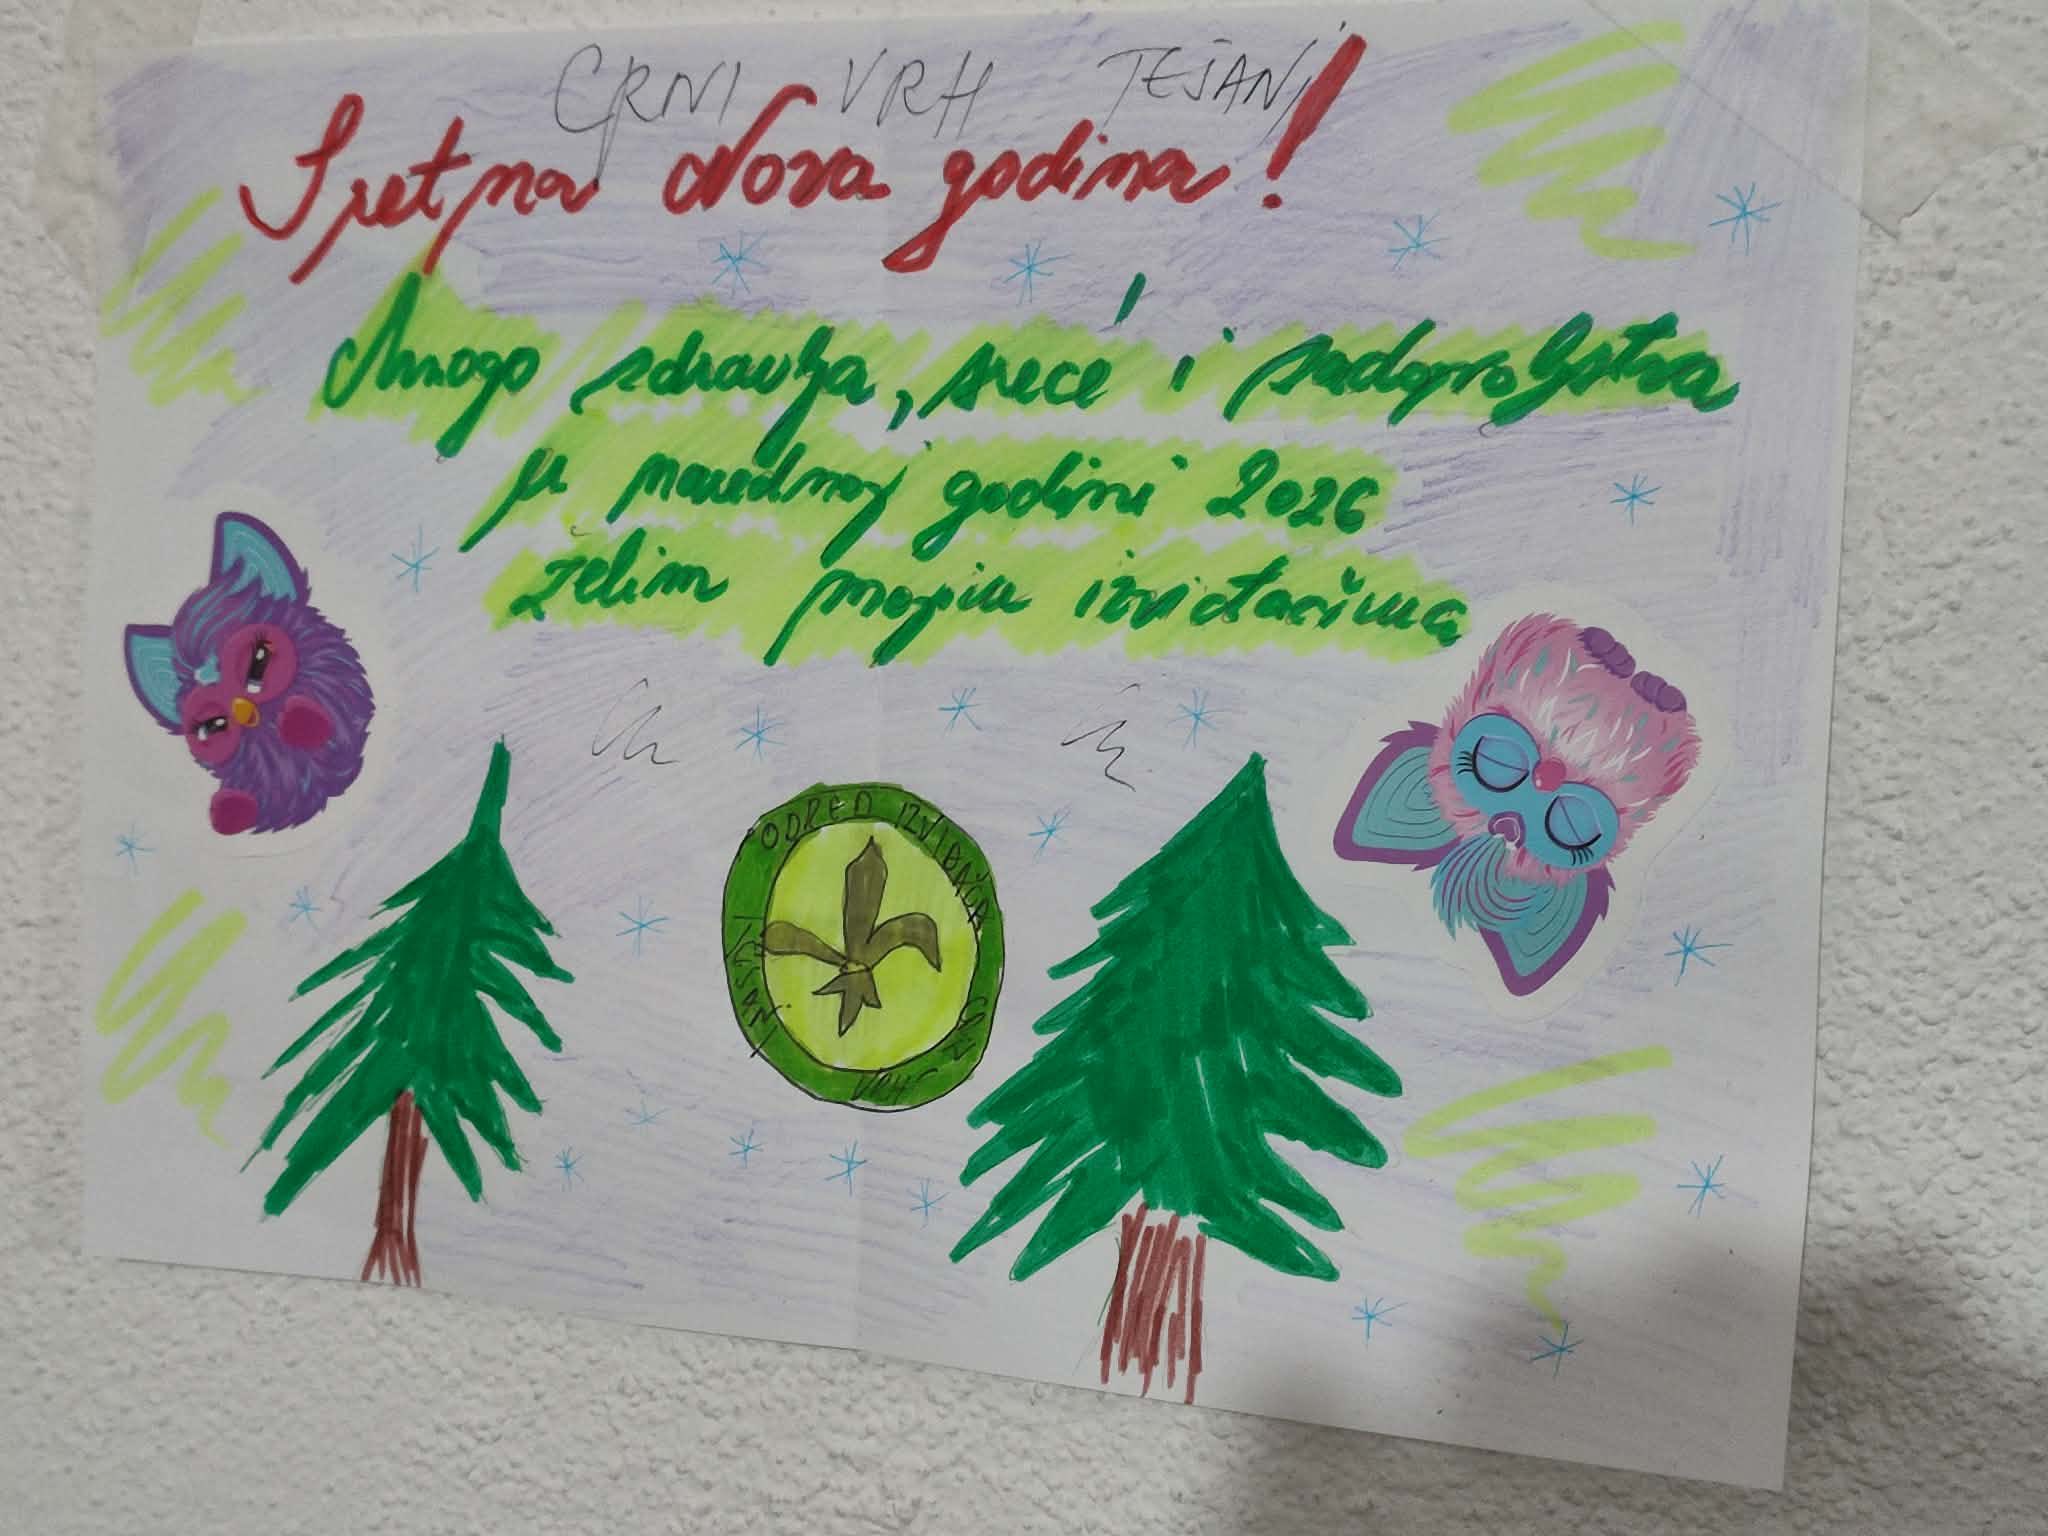 CRNI VRH TEŠANJ
Sretna Nova godina!
Mnogo zdravlja, sreće i zadovoljstva
u narednoj godini 2026
želim mojim izviđačima
ODRED IZVIĐAČA
CRNI
VRH